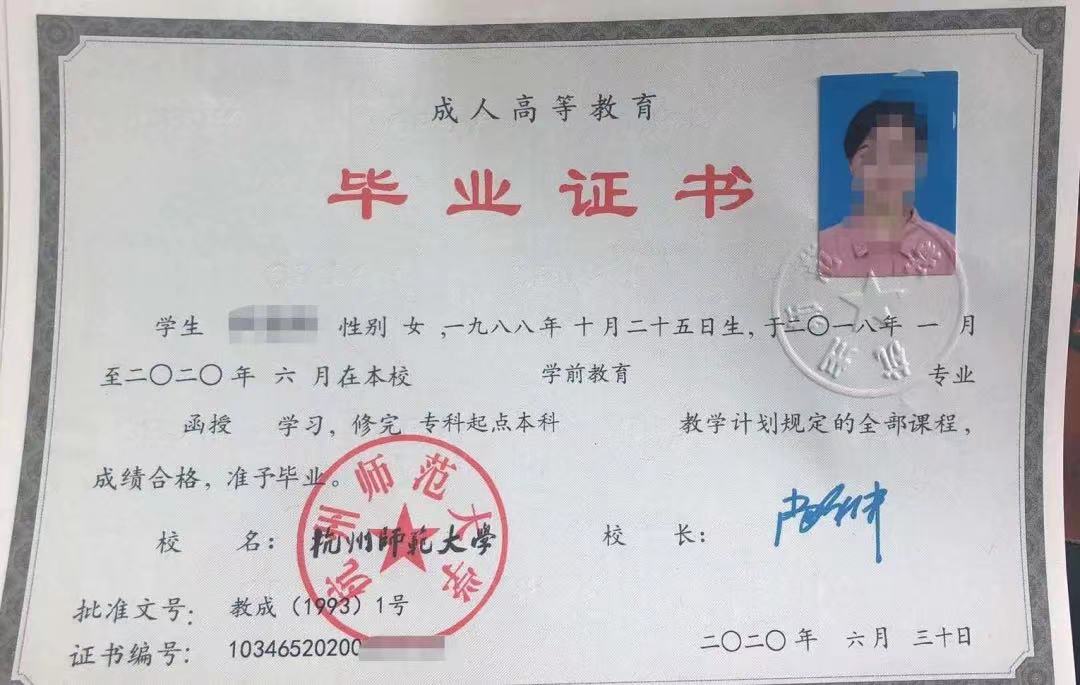 成人高等教育
毕业证书
学生 性别 女 ,一九八八年 十月二十五日生,于二〇一八年 一 月
至二〇二〇年 六 月在本校 学前教育 专业
函授 学习,修完 专科起点本科 教学计划规定的全部课程,
成绩合格,准予毕业。
杭州师范大学
校 名: 杭州師範大學 校 长:
批准文号: 教成(1993)1号
证书编号: 10346520200
二〇二〇年 六月 三十日